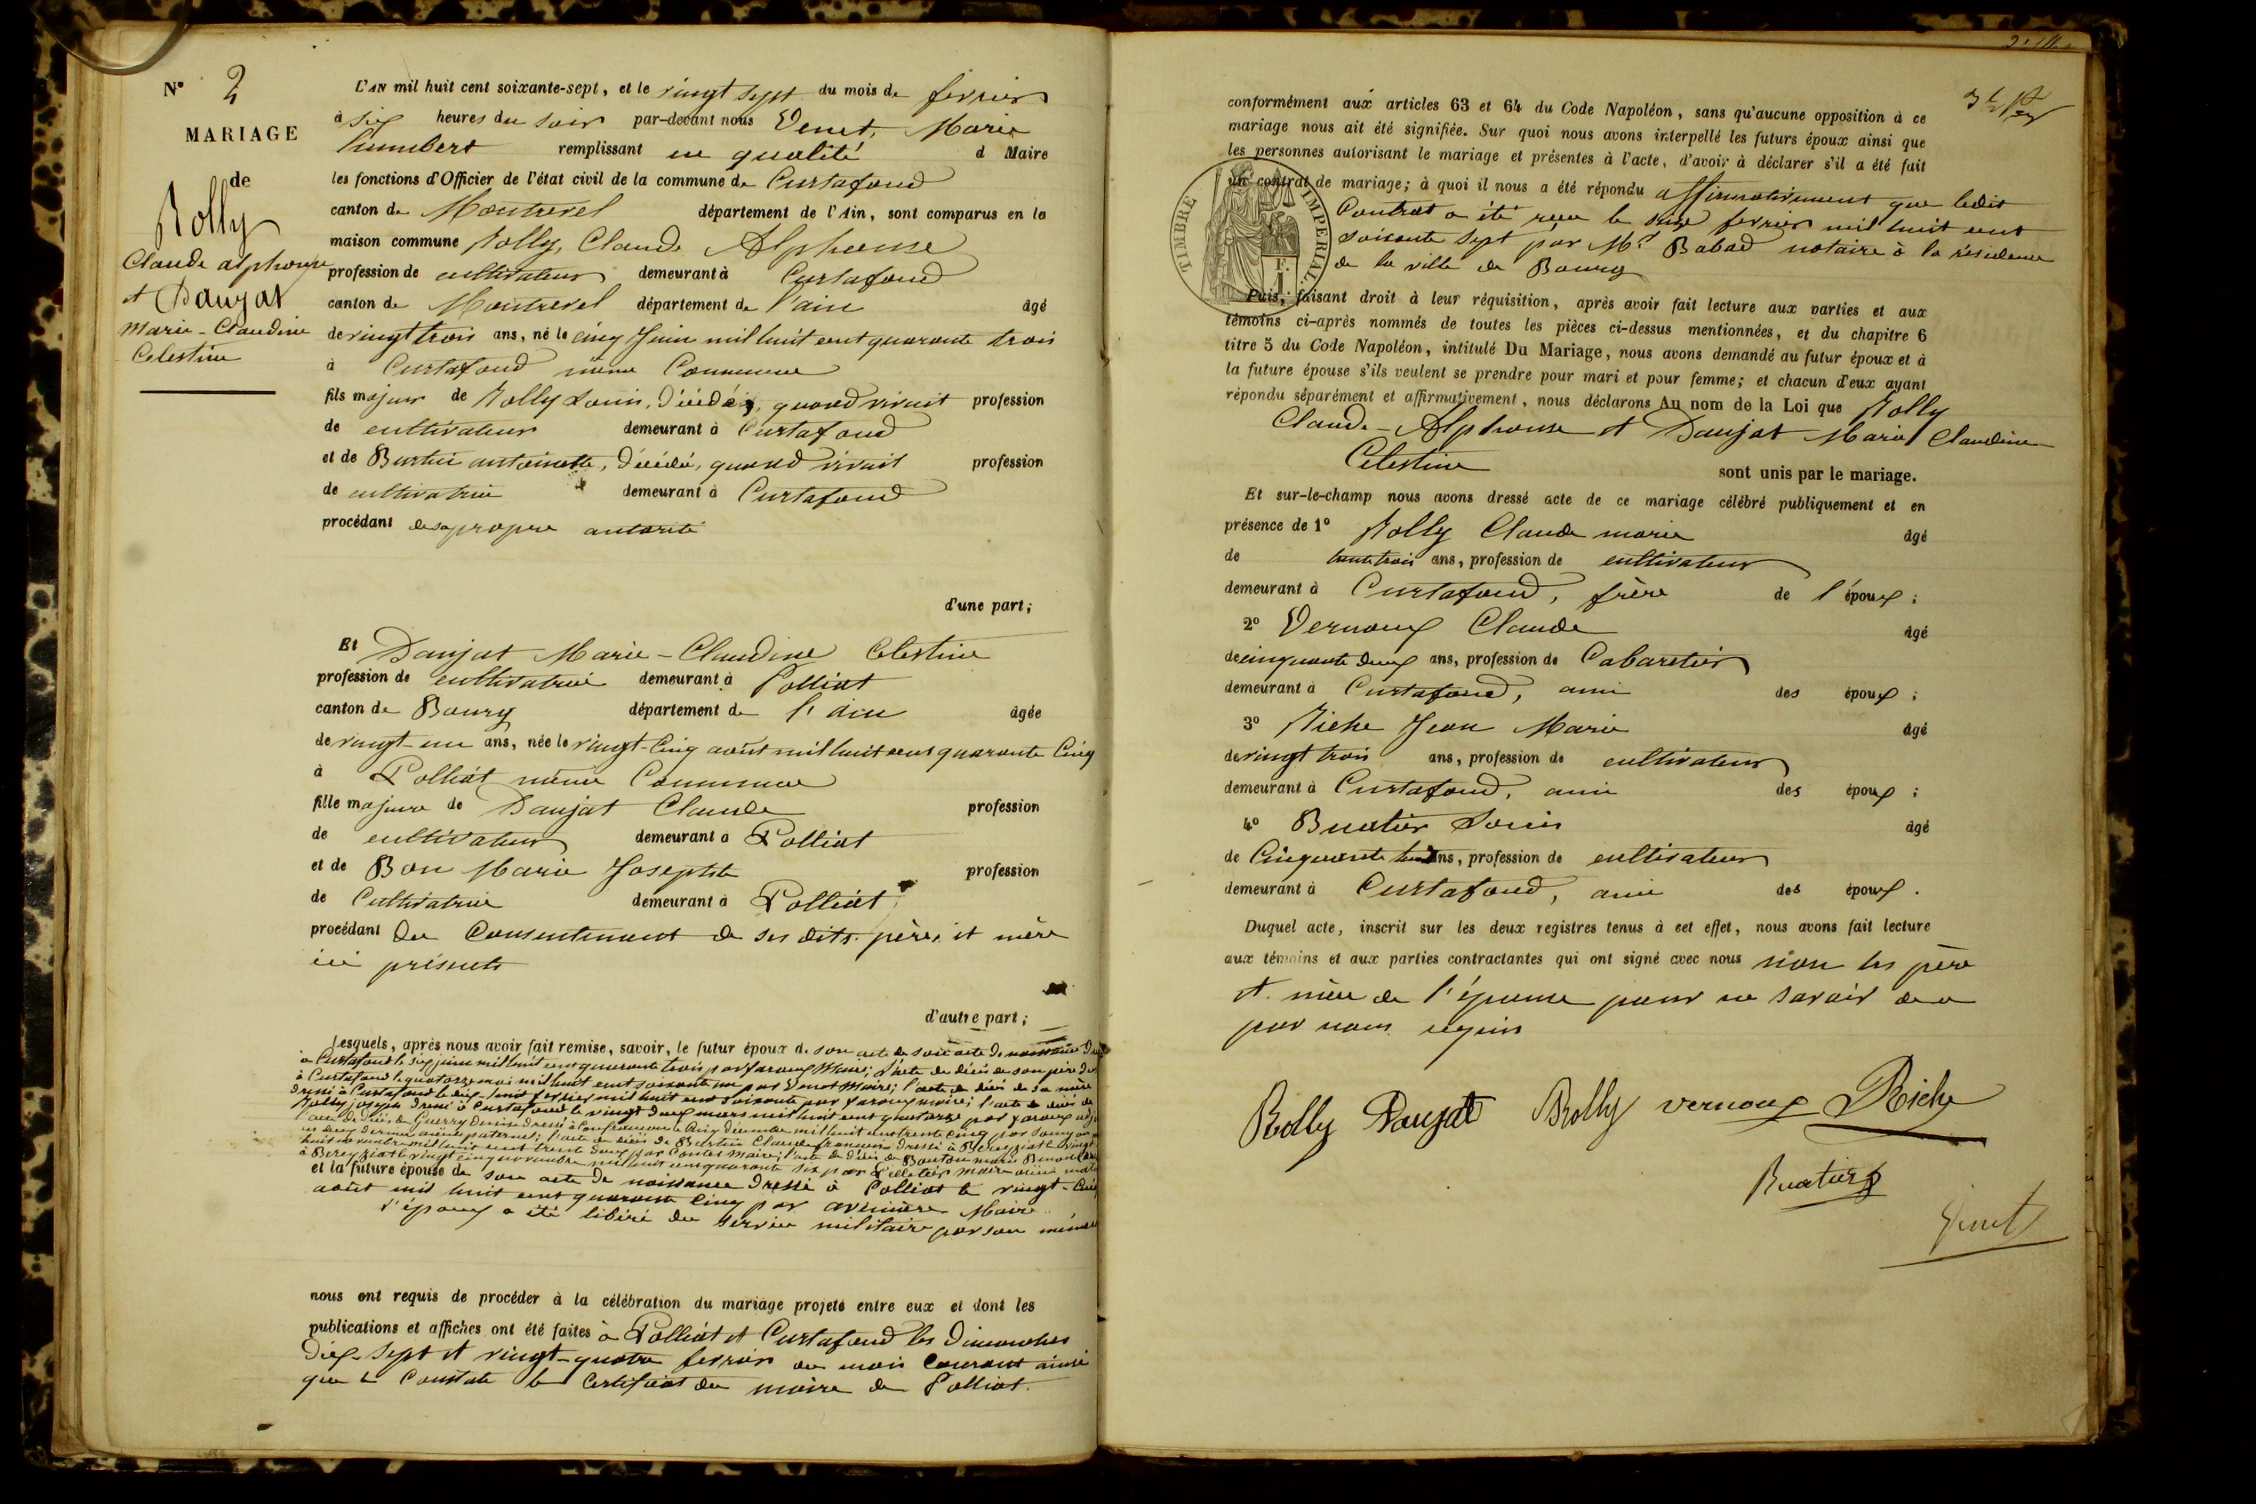 N° 2
MARIAGE
de
Rolly
Claude alphonse
et Daujat
Marie-Claudine
Celestine
L'AN mil huit cent soixante-sept, et le vingt sept du mois de fevrier
à six heures du soir par-devant nous Venet, Marie
humbert remplissant en qualité d Maire
les fonctions d'Officier de l'état civil de la commune de Curtafond
canton de Montrevel département de l'Ain, sont comparus en la
maison commune Rolly, Claude Alphonse
profession de cultivateur demeurant à Curtafond
canton de Montrevel département de l'ain âgé
de vingt trois ans, né le cinq Juin mil huit cent quarante trois
à Curtafond même Commune
fils majeur de Rolly Louis, Décédé, quand vivait profession
de cultivateur demeurant à Curtafond
et de Burtin antoinette, Décédée, quand vivait profession
de cultivatrice demeurant à Curtafond
procédant de sa propre autorité
d'une part;
Et Daujat Marie-Claudine Celestine
profession de cultivatrice demeurant à Polliat
canton de Bourg département de l'ain âgée
de vingt-un ans, née le vingt-Cinq août mil huit cent quarante Cinq
à Polliat même Commune
fille majeure de Daujat Claude profession
de cultivateur demeurant à Polliat
et de Bon Marie Josephte profession
de Cultivatrice demeurant à Polliat
procédant du Consentement de ses dits père, et mère
ici présents
d'autre part;
Lesquels, après nous avoir fait remise, savoir, le futur époux de son acte de naissance
à Curtafond le six juin mil huit cent quarante trois par Maire; l'acte de décés de son père
à Curtafond le quatorze mai mil huit cent soixante un par Venet Maire; l'acte de décés de sa mère
dressé à Curtafond le dix-huit fevrier mil huit cent soixante par maire; l'acte de décés de
Rolly joseph dressé à Curtafond le vingt deux mars mil huit cent quatorze par
acte de décés de Guerry Denise dressé à Confrancon le Cinq décembre mil huit cent trente cinq par
l'acte de décés de Burtin Claude françois dressé à Béréziat le vingt
huit mil huit cent trente deux par Maire; l'acte de décés de marie
à Bereziat le vingt cinq novembre mil huit cent quarante six par Pelletier maire
et la future épouse de son acte de naissance dressé à Polliat le vingt-Cinq
août mil huit cent quarante Cinq par Maire.
L'époux a été libéré du service militaire par son
nous ont requis de procéder à la célébration du mariage projeté entre eux et dont les
publications et affiches ont été faites à Polliat et Curtafond les Dimanches
Dix-sept et vingt-quatre fevrier au mois Courant ainsi
que le Constate le Certificat du maire de Polliat.
conformément aux articles 63 et 64 du Code Napoléon, sans qu'aucune opposition à ce
mariage nous ait été signifiée. Sur quoi nous avons interpellé les futurs époux ainsi que
les personnes autorisant le mariage et présentes à l'acte, d'avoir à déclarer s'il a été fait
un contrat de mariage; à quoi il nous a été répondu affirmativement que ledit
Contrat a été reçu le seize fevrier mil huit cent
soixante sept par Me Babad notaire à la résidence
de la ville de Bourg
TIMBRE IMPERIAL
Puis, faisant droit à leur réquisition, après avoir fait lecture aux parties et aux
témoins ci-après nommés de toutes les pièces ci-dessus mentionnées, et du chapitre 6
titre 5 du Code Napoléon, intitulé Du Mariage, nous avons demandé au futur époux et à
la future épouse s'ils veulent se prendre pour mari et pour femme; et chacun d'eux ayant
répondu séparément et affirmativement, nous déclarons Au nom de la Loi que Rolly
Claude-Alphonse et Daujat Marie Claudine
Celestine sont unis par le mariage.
Et sur-le-champ nous avons dressé acte de ce mariage célébré publiquement et en
présence de 1° Rolly Claude marie âgé
de trente trois ans, profession de cultivateur
demeurant à Curtafond, frère de l'époux;
2° Vernoux Claude âgé
de cinquante deux ans, profession de Cabaretier
demeurant à Curtafond, ami des époux;
3° Riche Jean Marie âgé
de vingt trois ans, profession de cultivateur
demeurant à Curtafond, ami des époux;
4° Buatier Louis âgé
de Cinquante ans, profession de cultivateur
demeurant à Curtafond, ami des époux.
Duquel acte, inscrit sur les deux registres tenus à cet effet, nous avons fait lecture
aux témoins et aux parties contractantes qui ont signé avec nous non les père
et mère de l'épouse pour ne savoir de ce
par nous requis
Rolly Daujat Rolly Vernoux Riche
Buatier
Venet